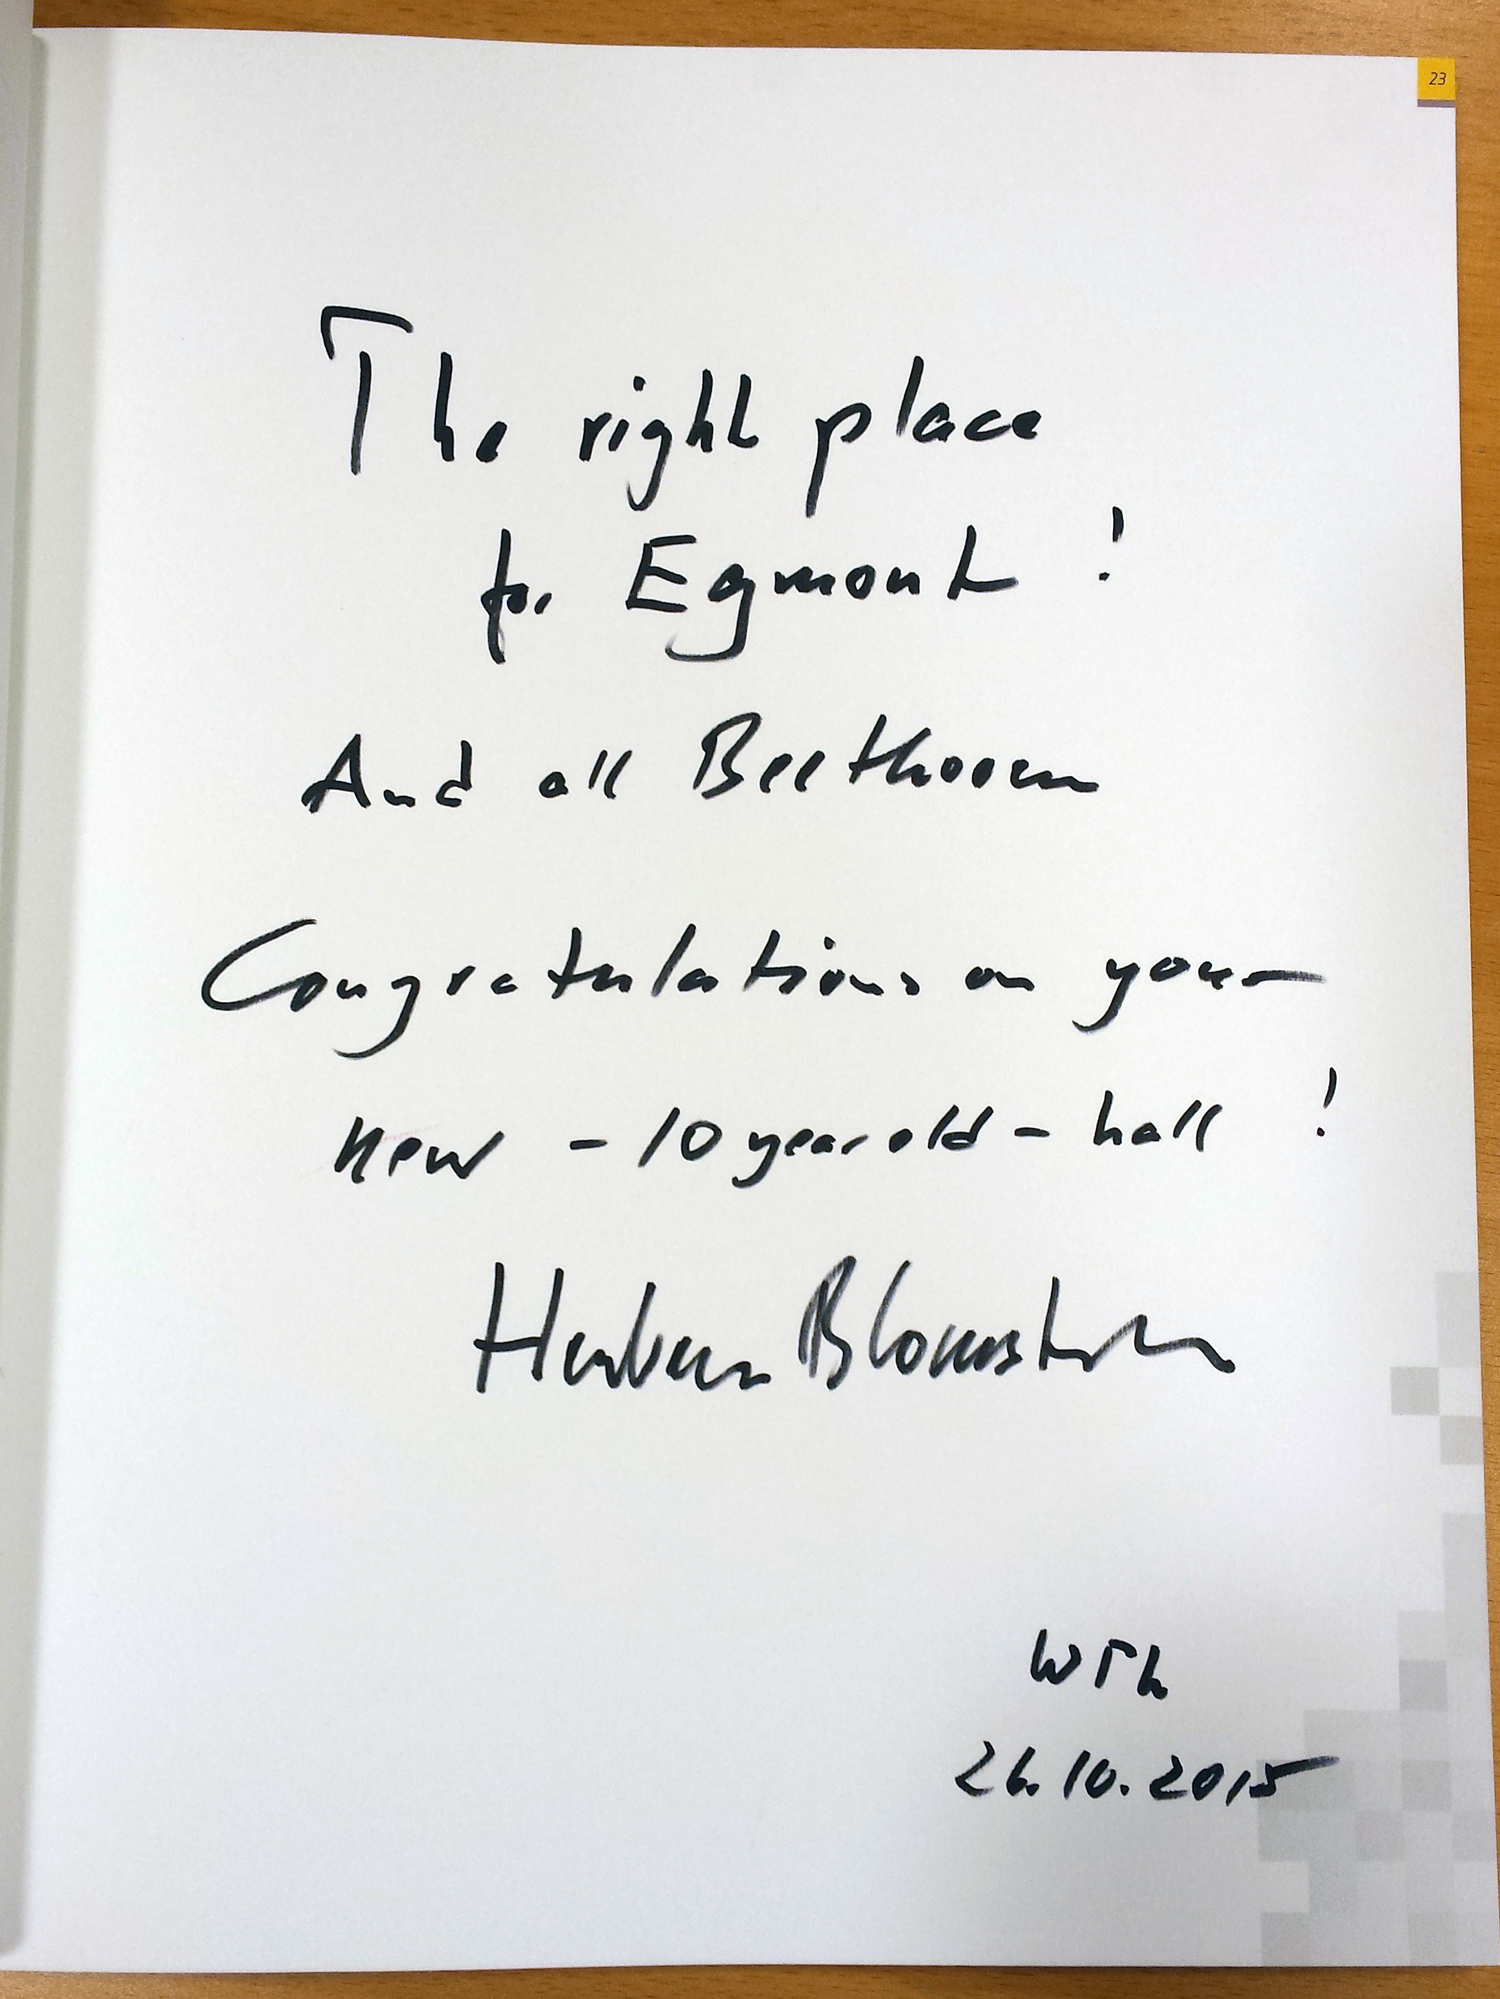 23
The right place
for Egmont !
And all Beethoven
Congratulations on your
new - 10 year old - hall !
Herbert Blomstedt
WPh
26.10.2015